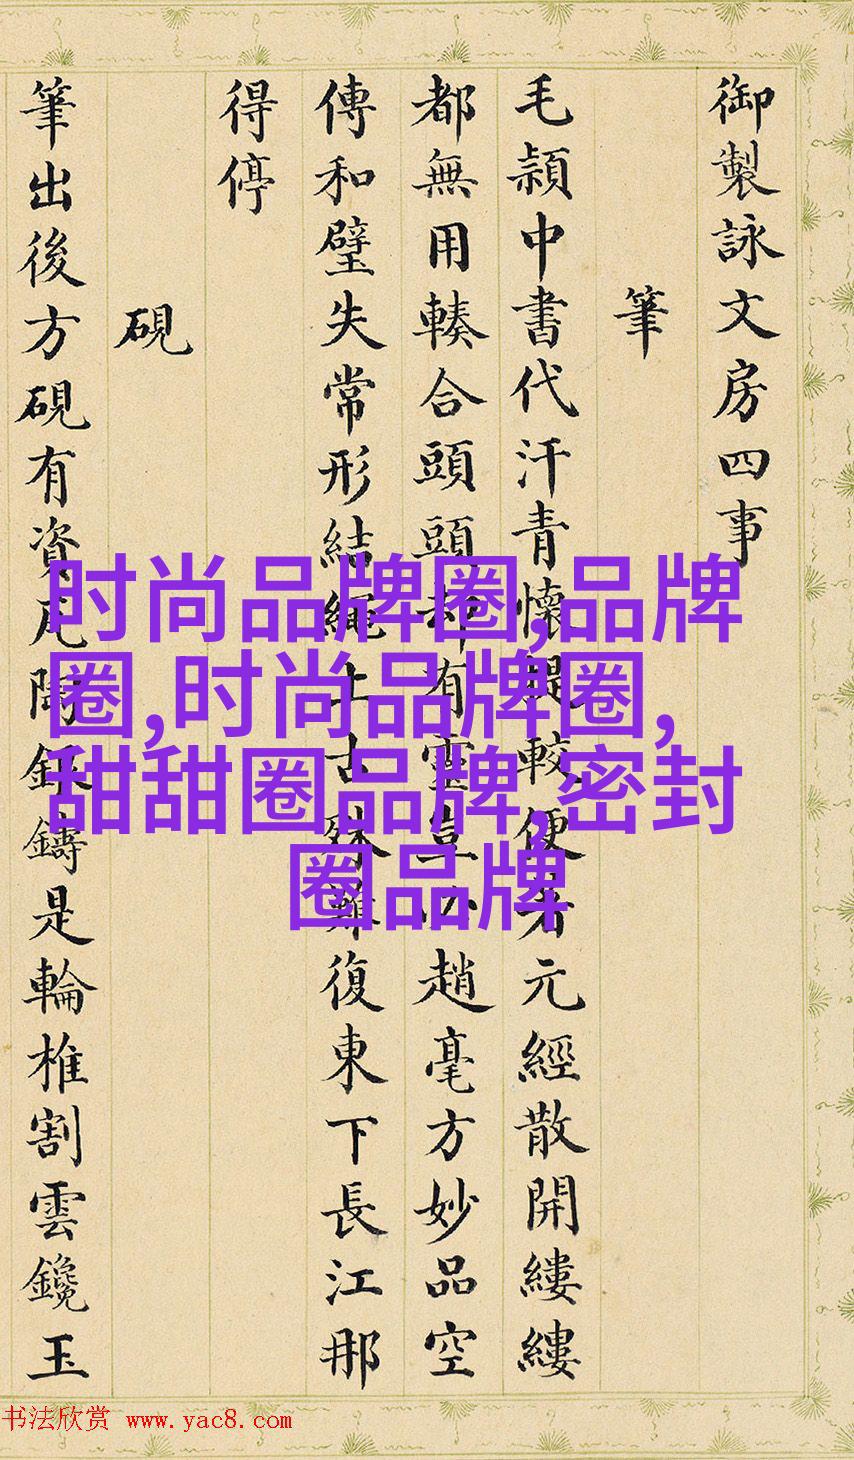 御製詠文房四事
筆
毛穎中書代汗青懷提較便元經散開縷縷
都無用輳合頭頭却有靈豈必趙毫方妙品空
傳和璧失常形結繩上古殊難復東下長江那
得停
硯
筆出後方硯有資瓦陶銀鑄是輪椎割雲鑱玉
时尚品牌圈,品牌
圈,时尚品牌圈,
甜甜圈品牌,密封
圈品牌
书法欣赏 www.yac8.com